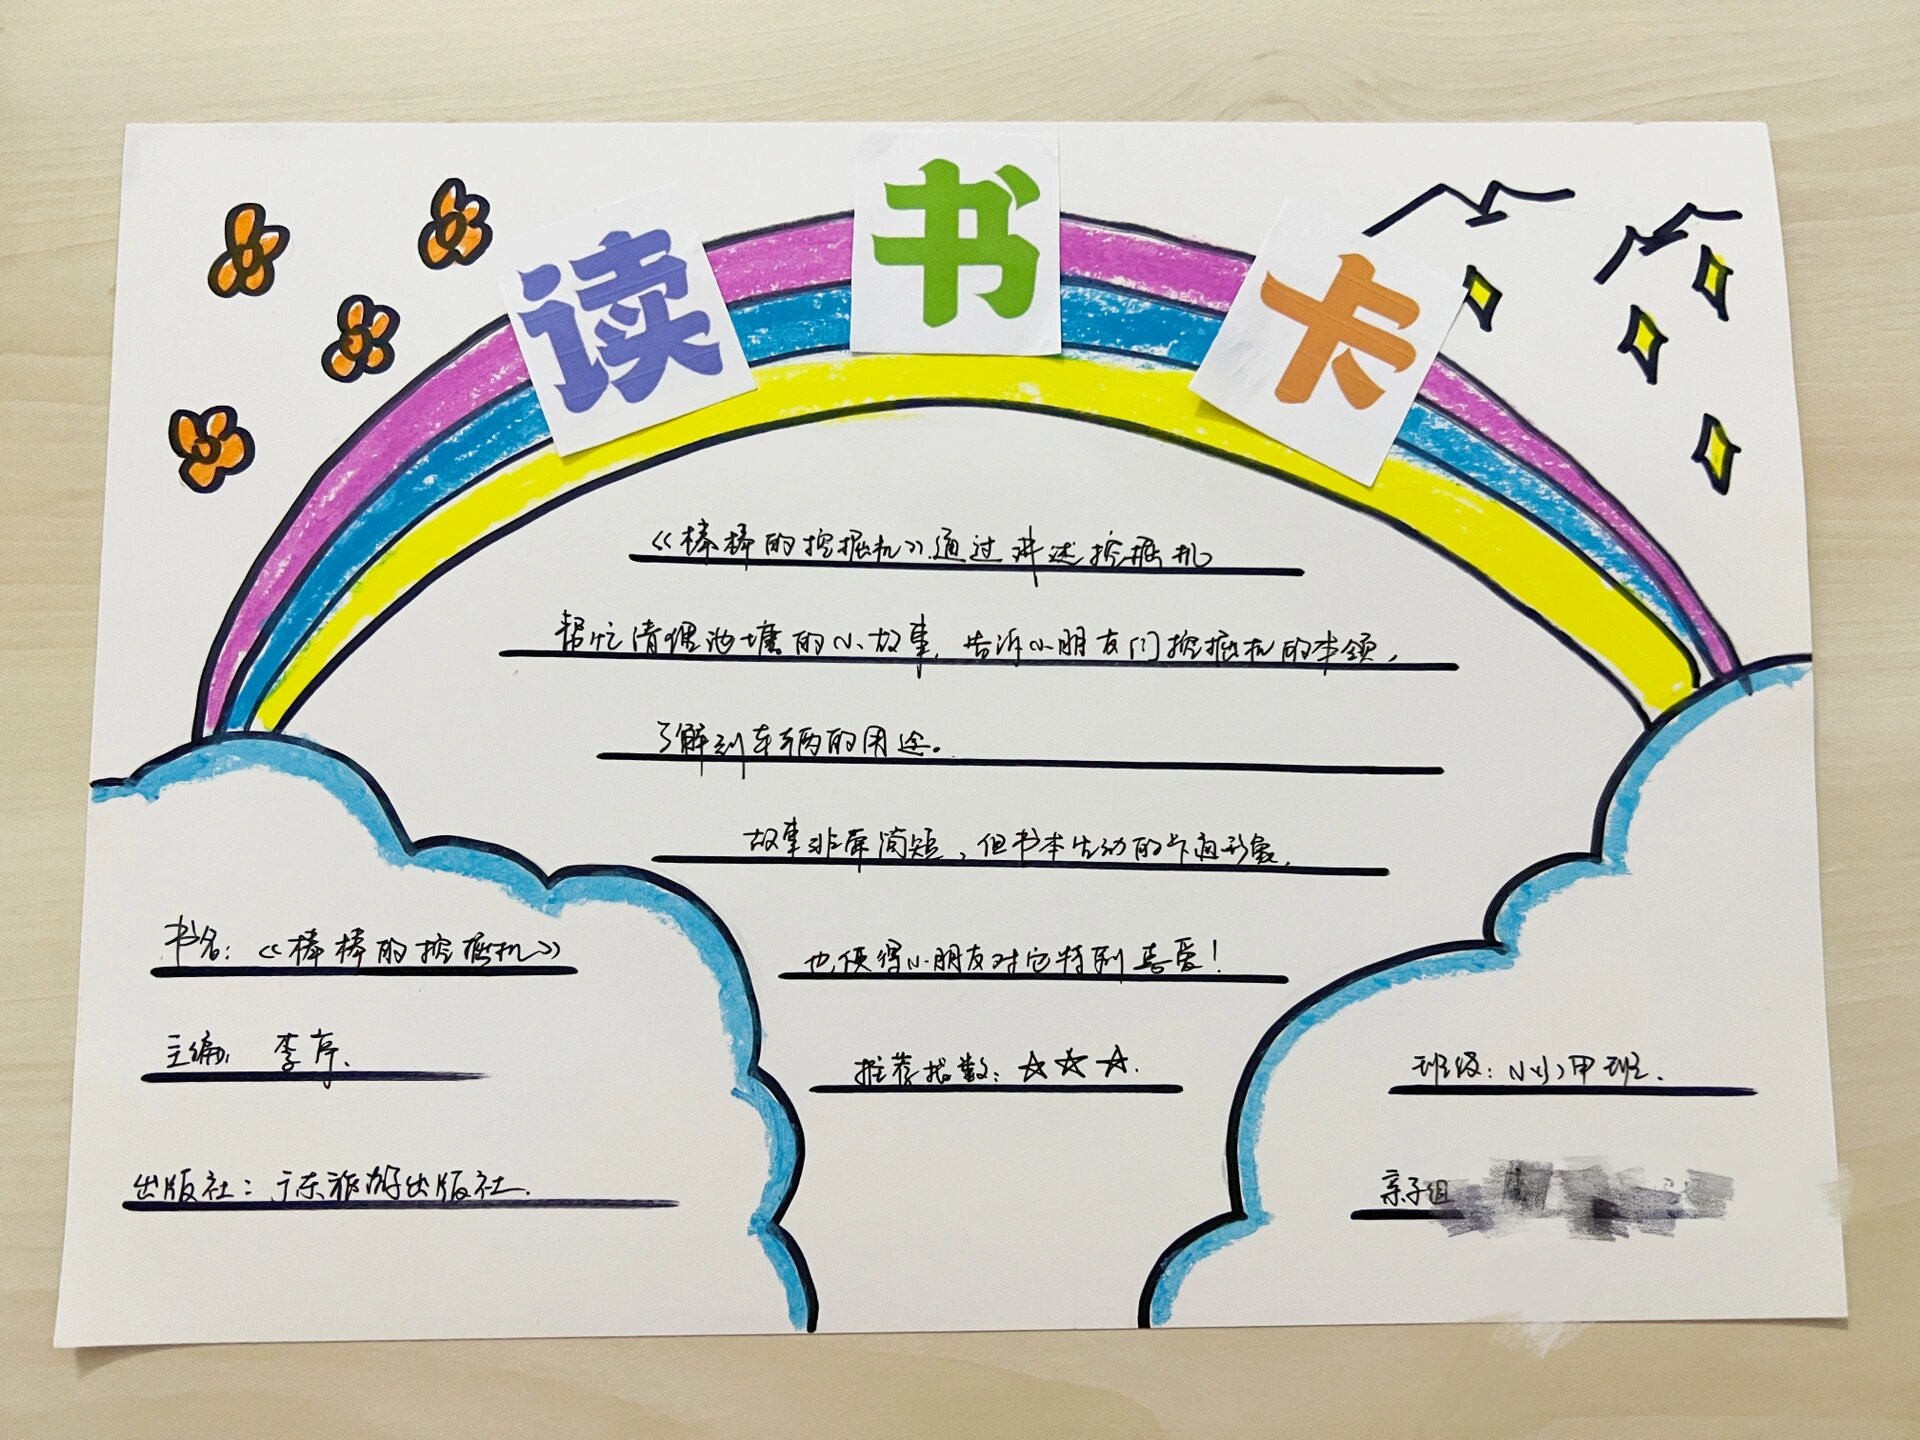 读书卡
《棒棒的挖掘机》通过讲述挖掘机
帮忙清理池塘的小故事，告诉小朋友们挖掘机的本领，
了解到车辆的用途。
故事非常简短，但书本生动的卡通形象，
也使得小朋友对它特别喜爱！
推荐指数：☆☆☆.
书名：《棒棒的挖掘机》
主编：李亭.
出版社：广东旅游出版社.
班级：小小甲班.
亲子组